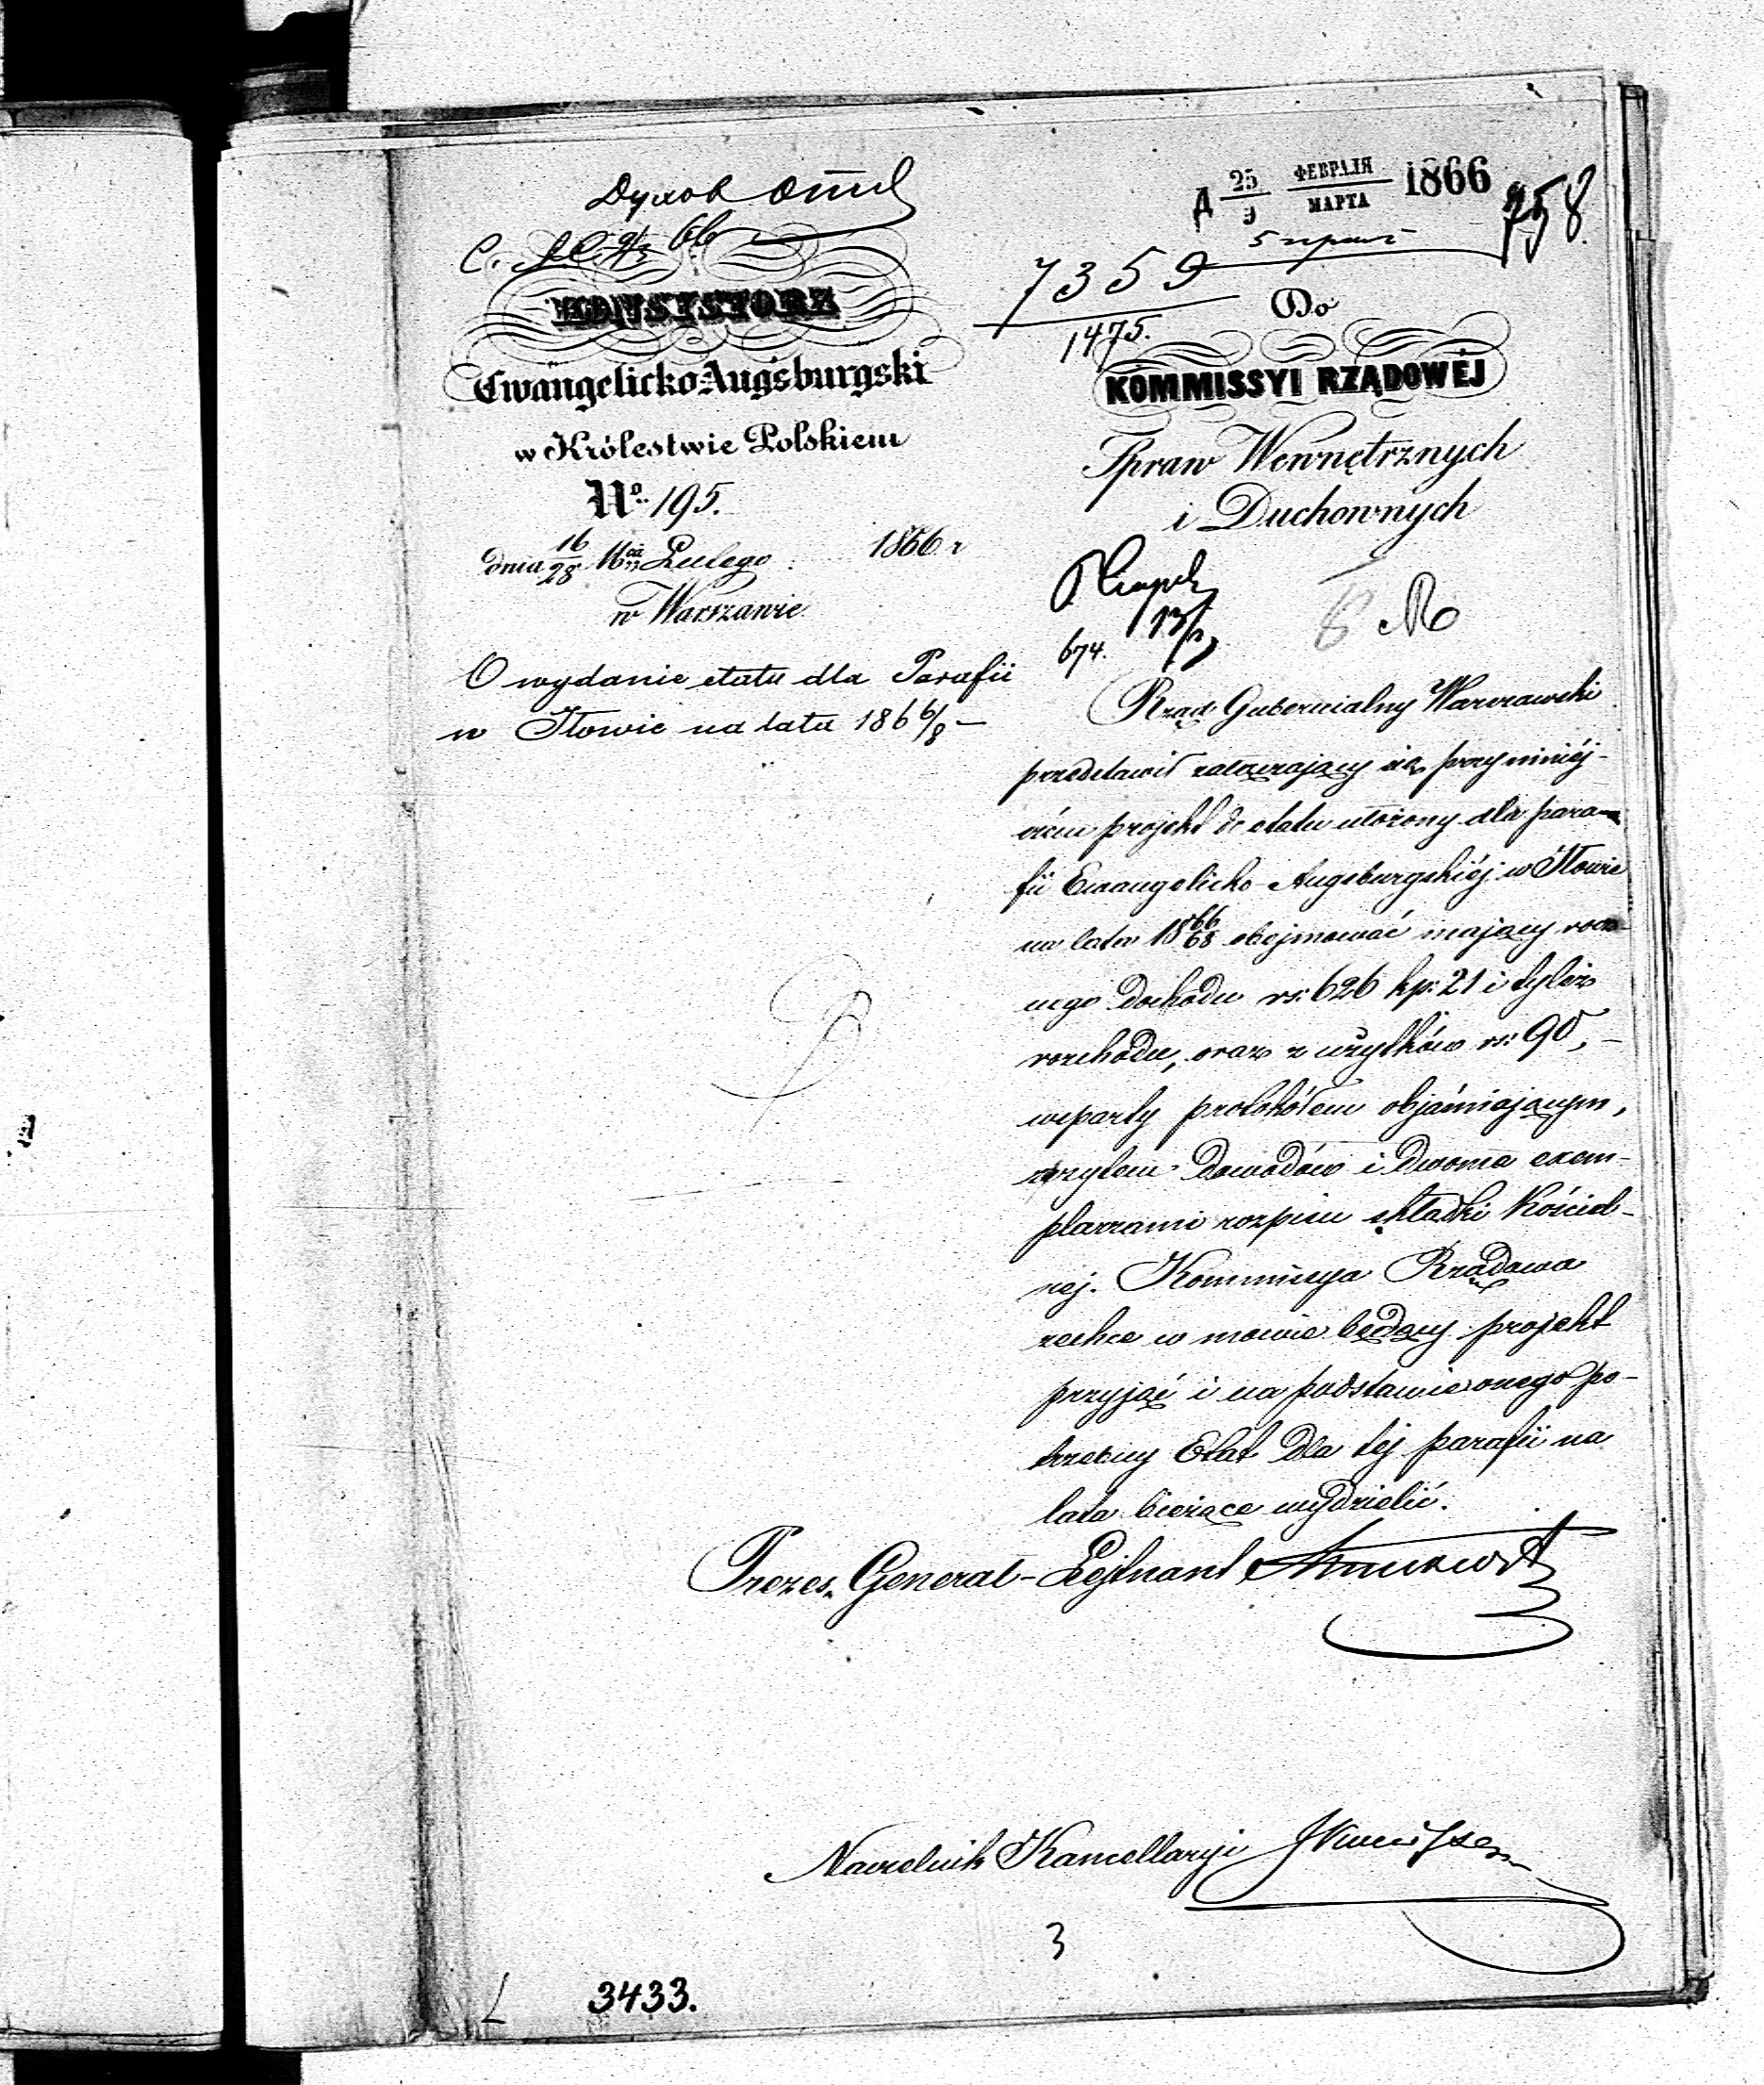 Духов Отд
Д 25/9 ФЕВРАЛЯ/МАРТА 1866
758.
7359
1475.
KONSYSTORZ
Ewangelicko-Augsburgski
w Królestwie Polskiem
No. 195.
dnia 16/28 Mca Lutego 1866 r
w Warszawie
O wydanie etatu dla Parafii
w Iłowie na lata 186 6/8 –
Do
KOMMISSYI RZĄDOWÉJ
Spraw Wewnętrznych
i Duchownych
13/3
674.
Rząd Gubernialny Warszawski
przedstawił załączający się przy niniéj-
szém projekt do etatu ułożony dla para-
fii Ewangelicko-Augsburgskiéj w Iłowie
na lata 18 66/68 obejmować mający rocz-
nego dochodu rs: 626 kp: 21 i tyleż
rozchodu, oraz z użytków rs: 90, –
wsparty protokółem objaśniającym,
zszytem dowodów i dwoma exem-
plarzami rozpisu składki Kościel-
nej. Kommissya Rządowa
zechce w mowie będący projekt
przyjąć i na podstawie onego po-
trzebny Etat dla tej parafii na
lata bieżące wydzielić.
Prezes, General-Lejtnant
Naczelnik Kancellaryi
3
3433.